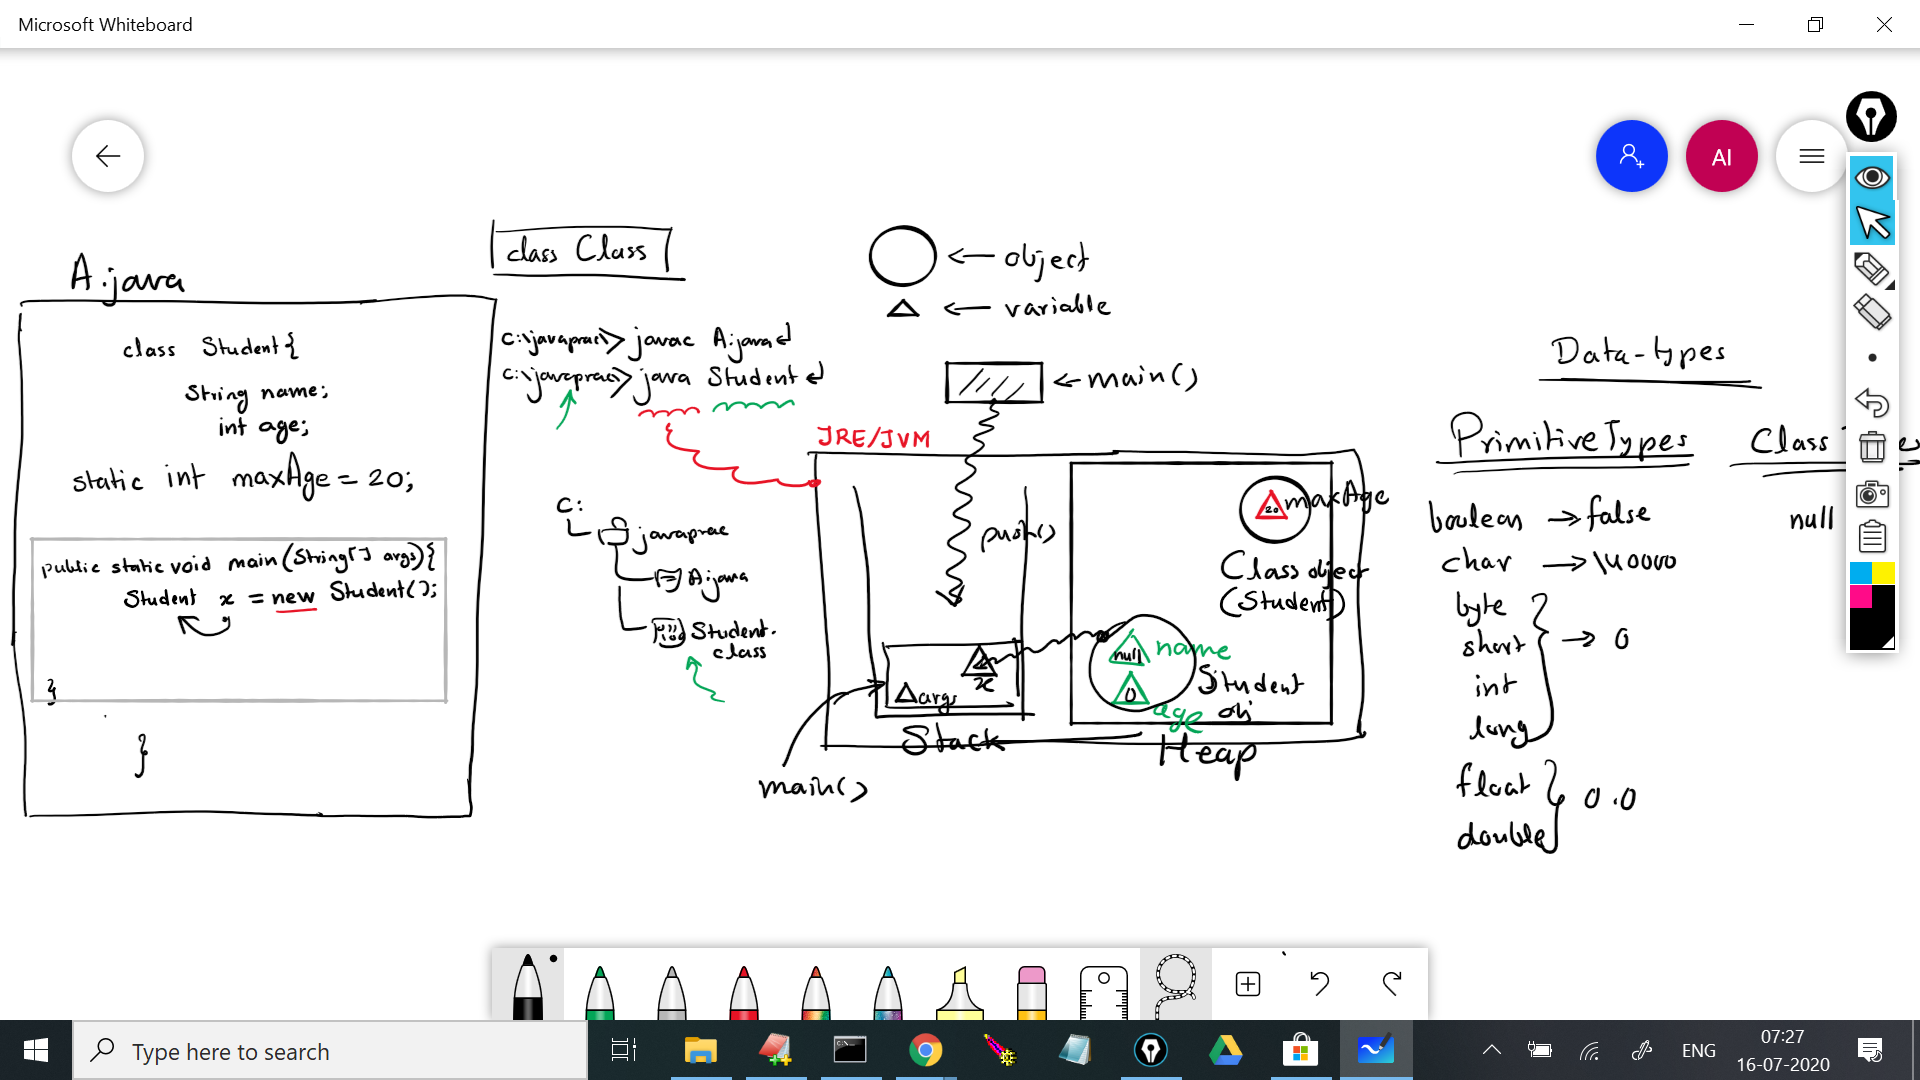 Microsoft Whiteboard
AI
A.java
class Student{
String name;
int age;
static int maxAge = 20;
public static void main(String[] args){
Student x = new Student();
}
}
class Class
c:\javaprac\> javac A.java↵
c:\javaprac\> java Student↵
C:
javaprac
A.java
Student.
class
object
variable
main()
JRE/JVM
push()
20
maxAge
Class object
(Student)
null name
0
age
Student
obj
x
args
Stack
Heap
main()
Data-types
Primitive Types
boolean → false
char → \u0000
byte
short
int
long
→ 0
float
double
0.0
Class
null
Type here to search
ENG
07:27
16-07-2020